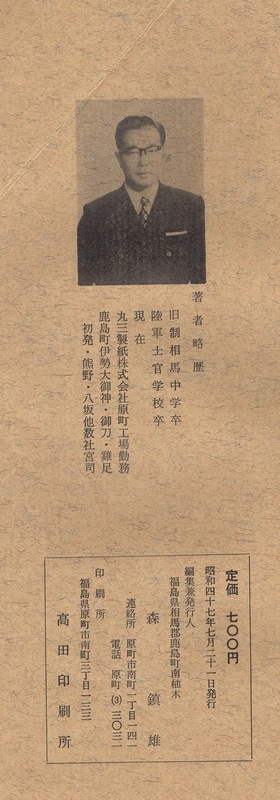 著者略歴
旧制相馬中学卒
陸軍士官学校卒
現在
丸三製紙株式会社原町工場勤務
鹿島町伊勢大御神・御刀・雞足
初発・熊野・八坂他数社宮司
定価 七〇〇円
昭和四十七年七月二十一日発行
編集兼発行人
福島県相馬郡鹿島町南柚木
森 鎮雄
連絡所 原町市南町一丁目一四一
電話 原町(3)三〇三一
印刷所
福島県原町市南町三丁目一三三
高田印刷所